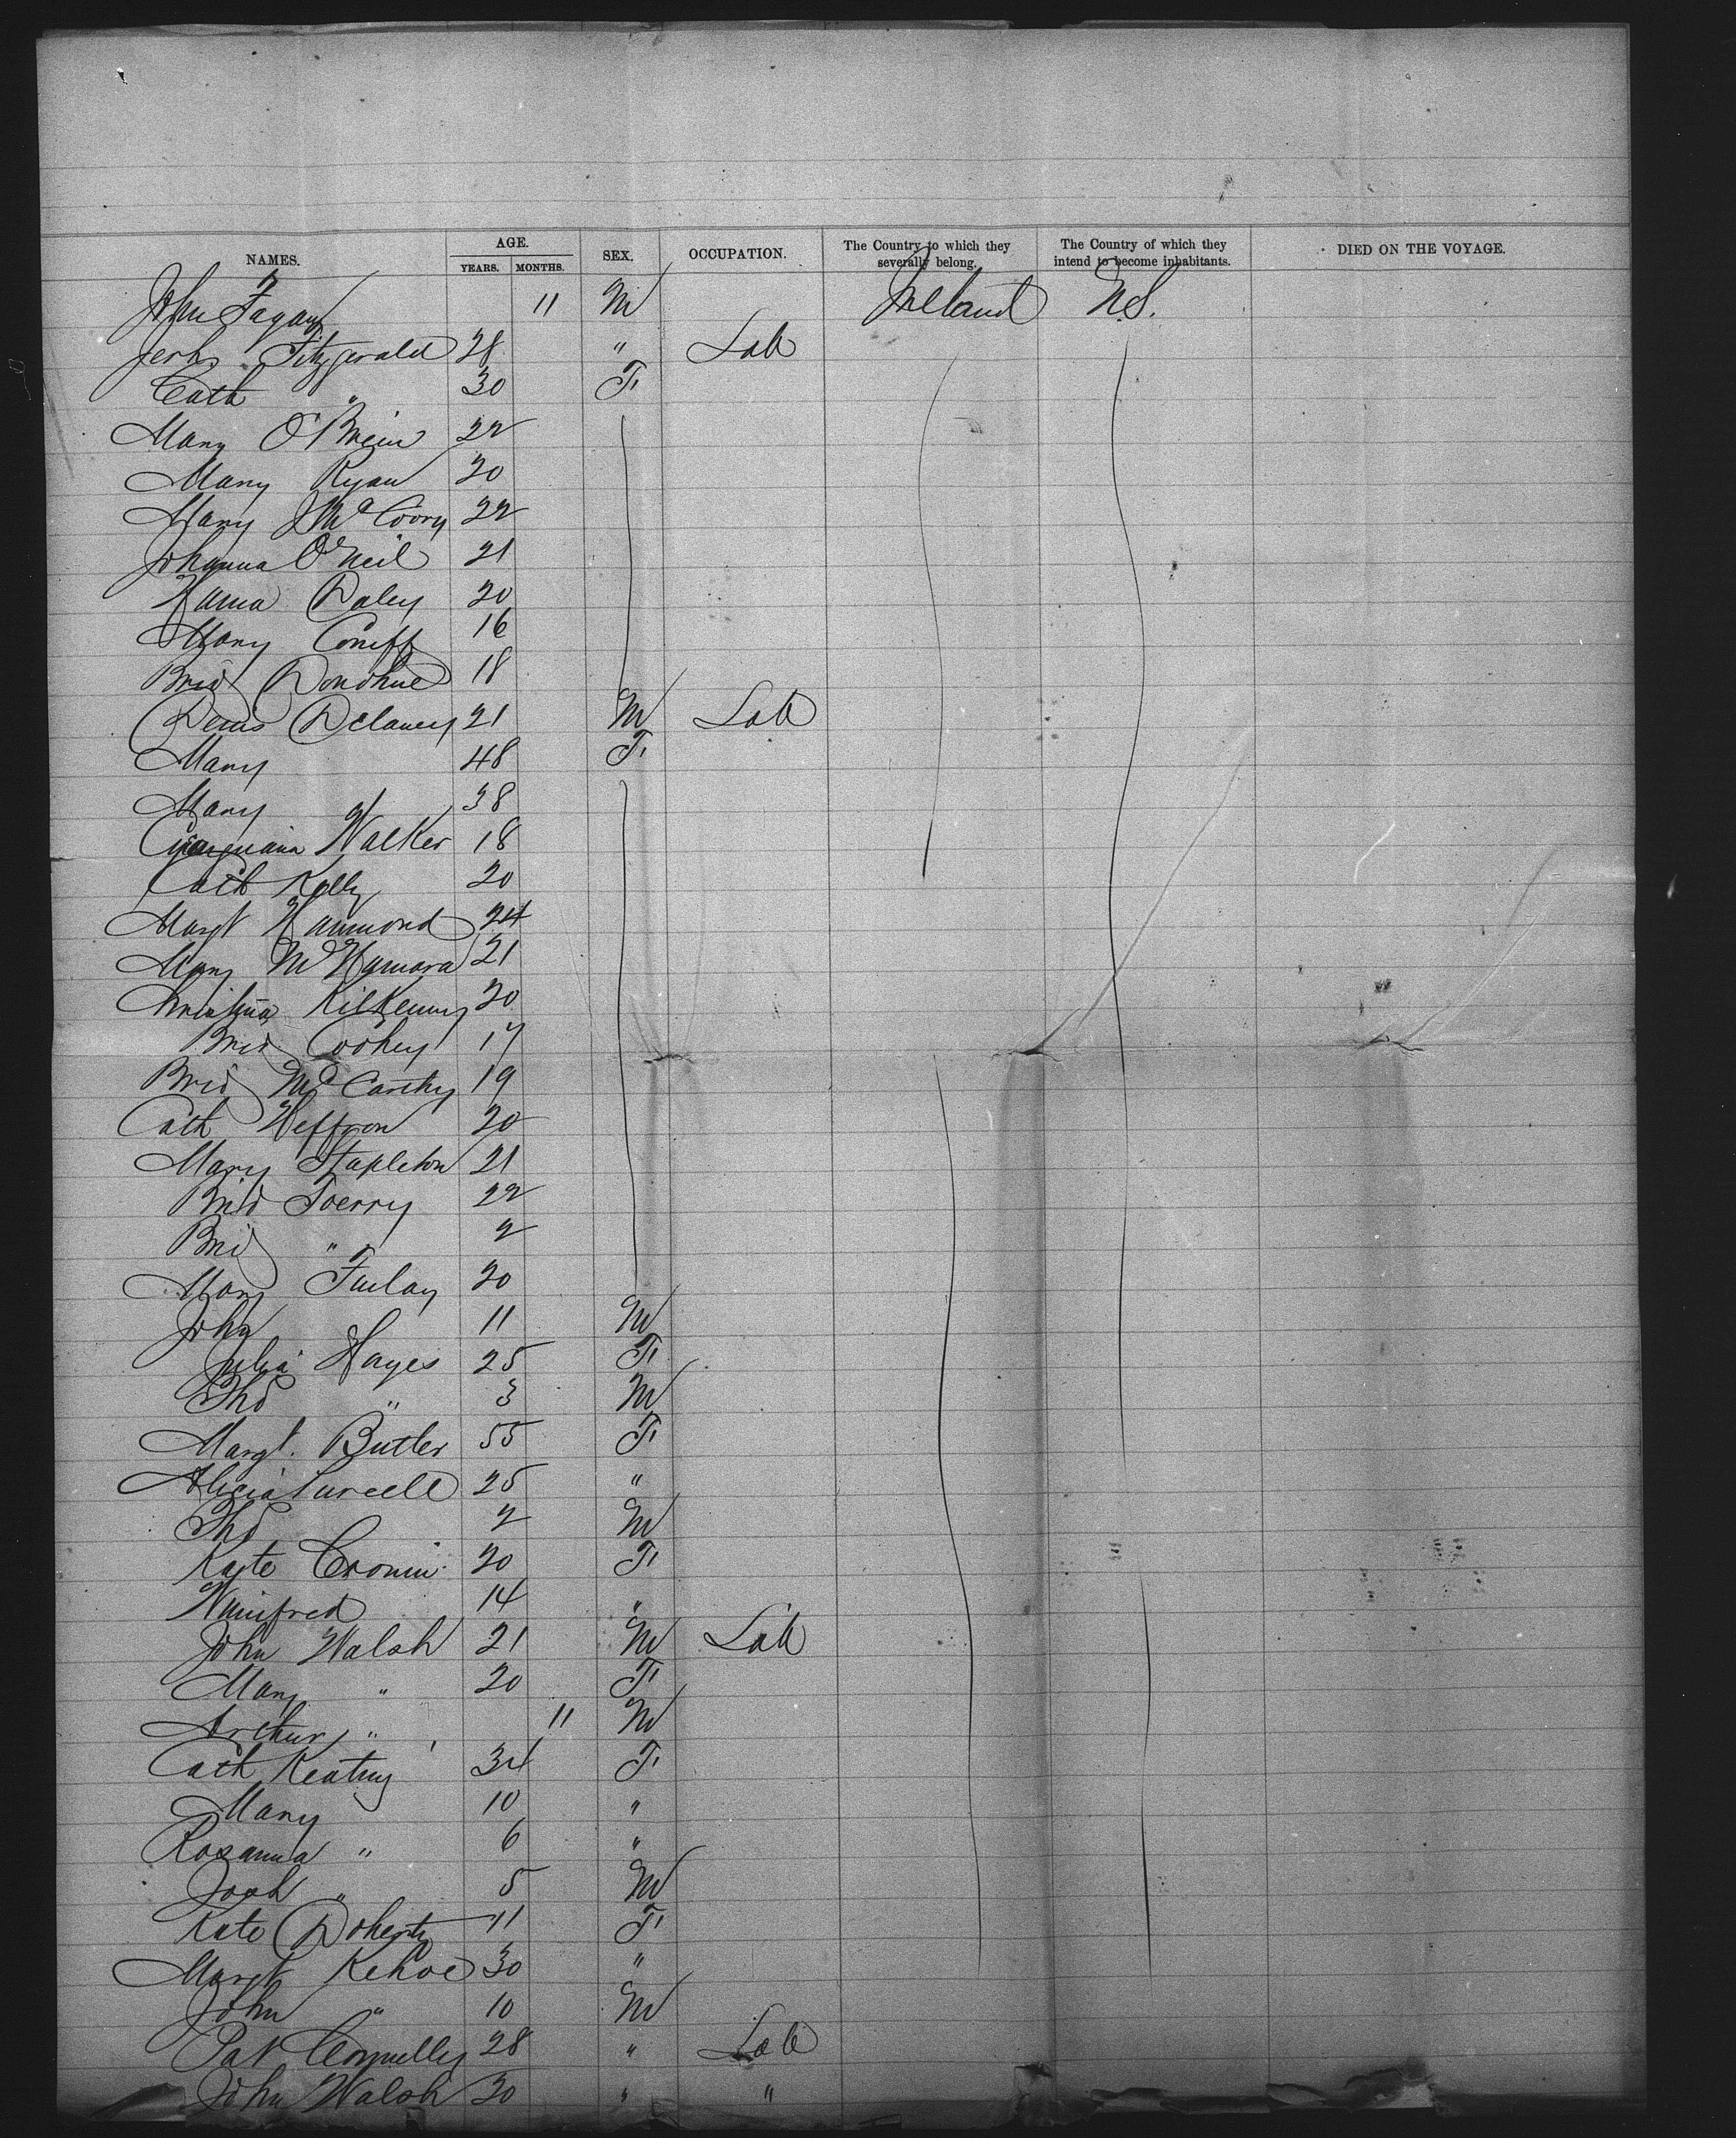 NAMES. AGE. YEARS. MONTHS. SEX. OCCUPATION. The Country to which they severally belong. The Country of which they intend to become inhabitants. DIED ON THE VOYAGE.
John Fagan 11 M Ireland U.S.
Jerh Fitzgerald 28 " Lab
Cath " 30 F
Mary O'Brien 22
Mary Ryan 20
Mary J McCoory 22
Johanna O'Neil 21
Hanna Daley 20
Mary Coniff 16
Brid Donohue 18
Denis Delaney 21 M Lab
Mary 48 F
Mary 38
Georgiana Walker 18
Cath Kelly 20
Margt Hammond 24
Mary McNamara 21
Christina Kilkenny 20
Brid Coohey 17
Brid McCarthy 19
Cath Heffron 20
Mary Stapleton 21
Brid Toerry 22
Brid " 2
Mary Finlay 20
John 11 M
Julia Hayes 25 F
Tho " 3 M
Margt. Butler 55 F
Alicia Purcell 25 "
Tho 2 M
Kate Cronin 20 F
Winifred 14 "
John Walsh 21 M Lab
Mary " 20 F
Arthur " 11 M
Cath Keating 34 F
Mary 10 "
Rosanna " 6 "
Josh " 5 M
Kate Doherty 11 F
Margt Kehoe 30 "
John " 10 M
Pat Connelly 28 " Lab
John Walsh 30 " "